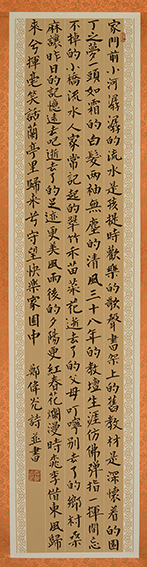 家門前小河潺潺的流水是孩提時歡樂的歌聲書架上的舊教材是深懷着的園
丁之夢一頭如霜的白髮兩袖無塵的清風三十八年的教壇生涯仿佛彈指一揮間忘
不掉的小橋流水人家常記起的翠竹禾苗菜花逝去了的父母叮嚀別去了的鄉村桑
麻讓昨日的記憶遠去吧逝去了的足迹更美風雨後的夕陽更紅春花爛漫時飛李借東風歸
來兮揮毫笑話蘭亭里歸來兮守望快樂家園中
鄭偉光詩並書